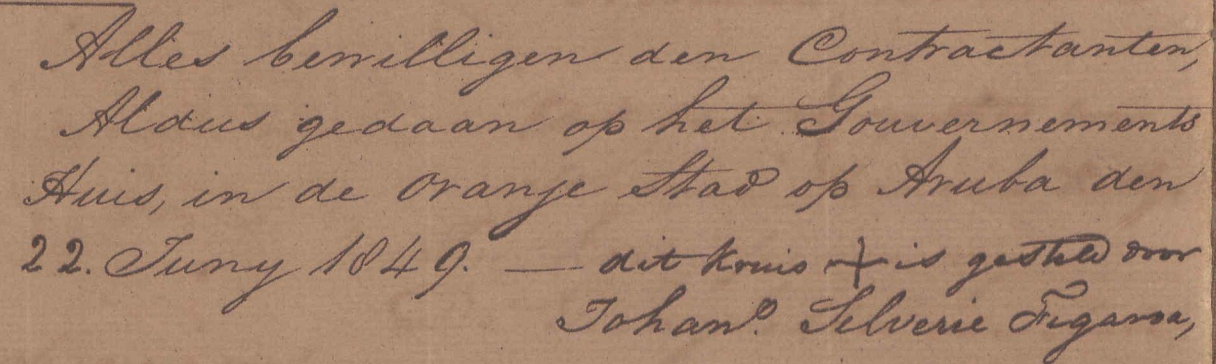 Alles bewilligen den Contractanten,
Aldus gedaan op het Gouvernements
Huis, in de Oranje Stad op Aruba den
22. Juny 1849. — dit kruis + is gesteld door
Johan⁰. Silverie Figaroa,